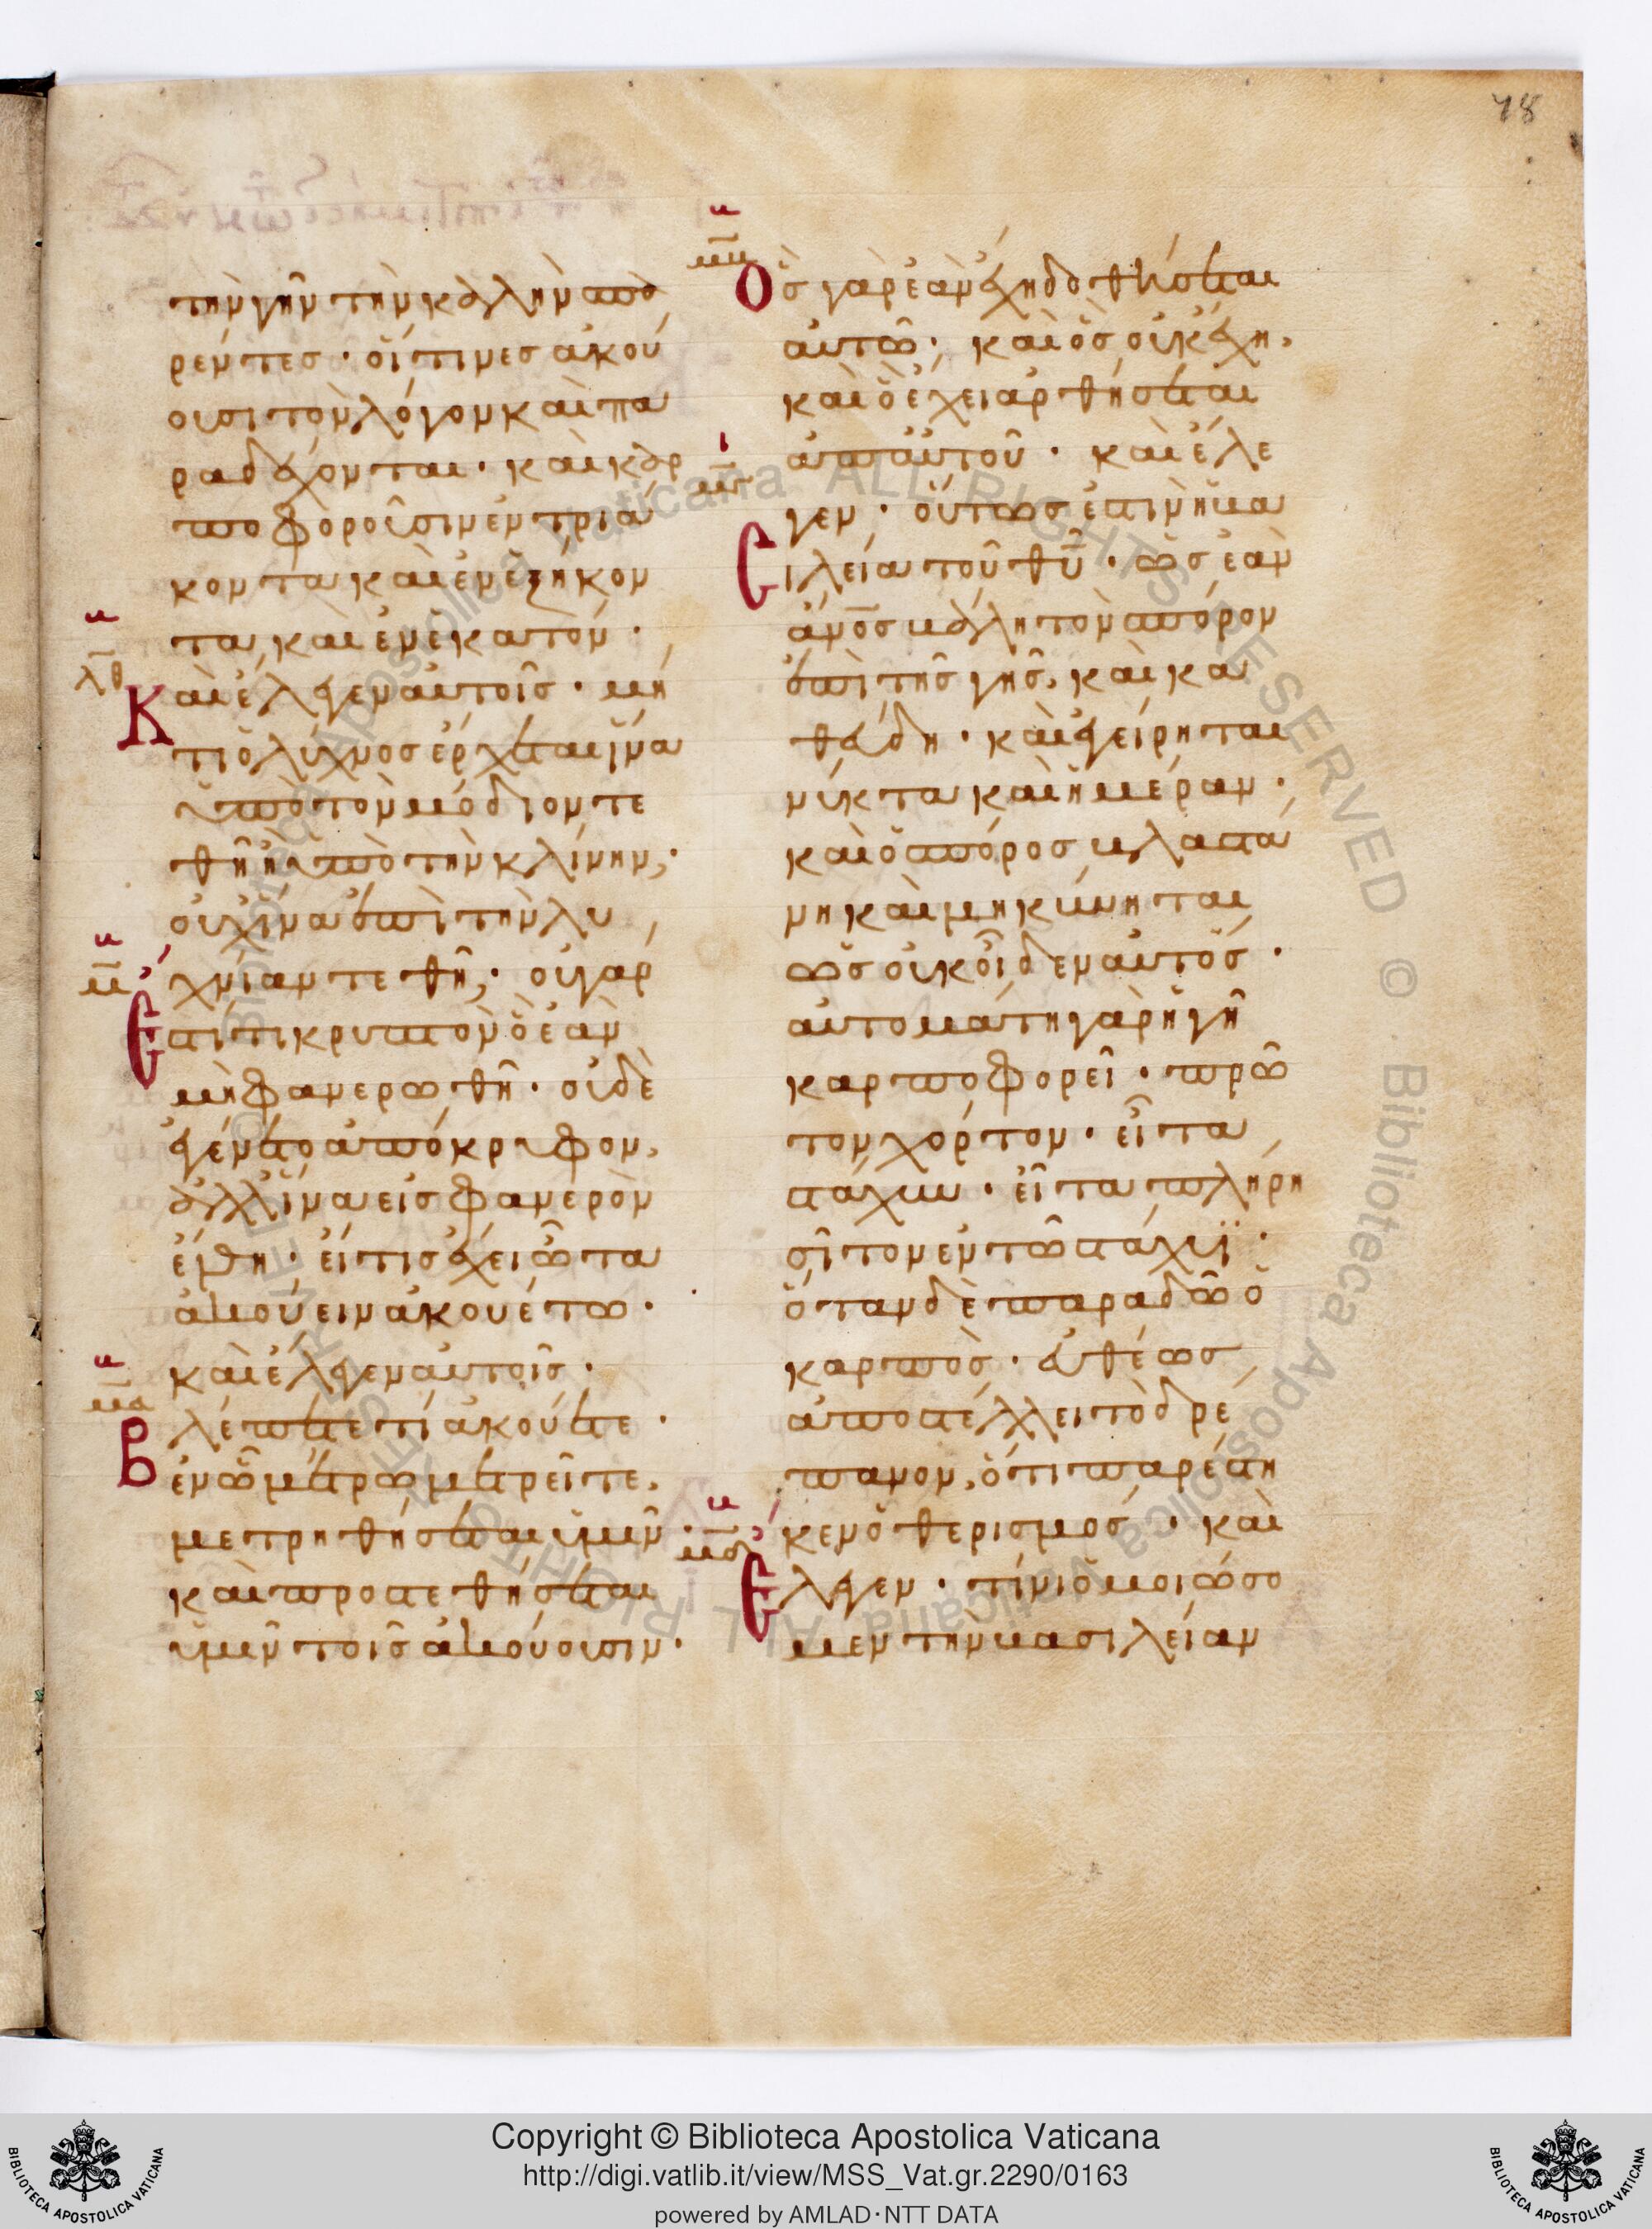 78
τὴν γῆν τὴν καλὴν σπα
ρέντες · οἵτινες ἀκού
ουσι τὸν λόγον καὶ πα
ραδέχονται · καὶ καρ
ποφοροῦσιν ἐν τριά
κοντα καὶ ἐν ἑξήκον
τα, καὶ ἐν ἑκατόν ·
λθ
Καὶ ἔλεγεν αὐτοῖς · μή
τι ὁ λύχνος ἔρχεται ἵνα
ὑπὸ τὸν μόδιον τε
θῇ ἢ ὑπὸ τὴν κλίνην,·
οὐχ ἵνα ἐπὶ τὴν λυ
μ
χνίαν τεθῇ,· οὐ γάρ
Εστί τι κρυπτὸν ὃ ἐὰν
μὴ φανερωθῇ · οὐδὲ
ἐγένετο ἀπόκρυφον,
ἀλλ' ἵνα εἰς φανερὸν
ἔλθη · εἴ τις ἔχει ὦτα
ἀκούειν ἀκουέτω ·
καὶ ἔλεγεν αὐτοῖς ·
μα
Βλέπετε τί ἀκούετε ·
ἐν ᾧ μέτρω μετρεῖτε,
μετρηθήσεται ὑμῖν ·
καὶ προστεθήσεται
ὑμῖν τοῖς ἀκούουσιν ·
μβ
Ὃς γὰρ ἐὰν ἔχη δοθήσεται
αὐτῶ · καὶ ὃς οὐκ ἔχη,
καὶ ὃ ἔχει ἀρθήσεται
ἀπ' αὐτοῦ · καὶ ἔλε
μγ
γεν · οὕτως ἐστὶν ἡ βα
Cιλεία τοῦ θυ · ὡς ἐὰν
ἄνος βάλη τὸν σπόρον
ἐπὶ τῆς γῆς, καὶ κα
θεύδη · καὶ ἐγείρηται
νύκτα καὶ ἡμέραν ·
καὶ ὁ σπόρος βλαστά
νη καὶ μηκύνηται
ὡς οὐκ οἶδεν αὐτός ·
αὐτομάτη γὰρ ἡ γῆ
καρποφορεῖ · πρῶ
τον χόρτον · εἶτα
στάχυν · εἶτα πλήρη
σῖτον ἐν τῶ στάχυϊ ·
ὅταν δὲ παραδῶ ὁ
καρπὸς · εὐθέως
ἀποστέλλει τὸ δρέ
πανον, ὅτι παρέστη
μδ
κεν ὁ θερισμός · καὶ
Ελεγεν · τίνι ὁμοιώσο
μεν τὴν βασιλείαν
Copyright © Biblioteca Apostolica Vaticana
http://digi.vatlib.it/view/MSS_Vat.gr.2290/0163
powered by AMLAD·NTT DATA